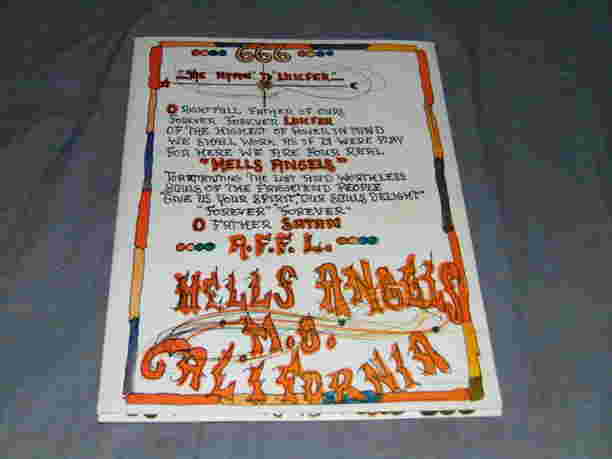 666
"The Hymn To Lucifer"
O Rightfull Father of ours
Forever Forever Lucifer
Of the Highest of Power in Mind
We shall work as if it were play
For here we are four real
"Hells Angels"
Tormenting the lost and worthless
Souls of the frightend people
Give us your spirit, "Our souls delight"
"Forever" "Forever"
O Father Satan
A.F.F.L.
Hells Angels
M.C.
California